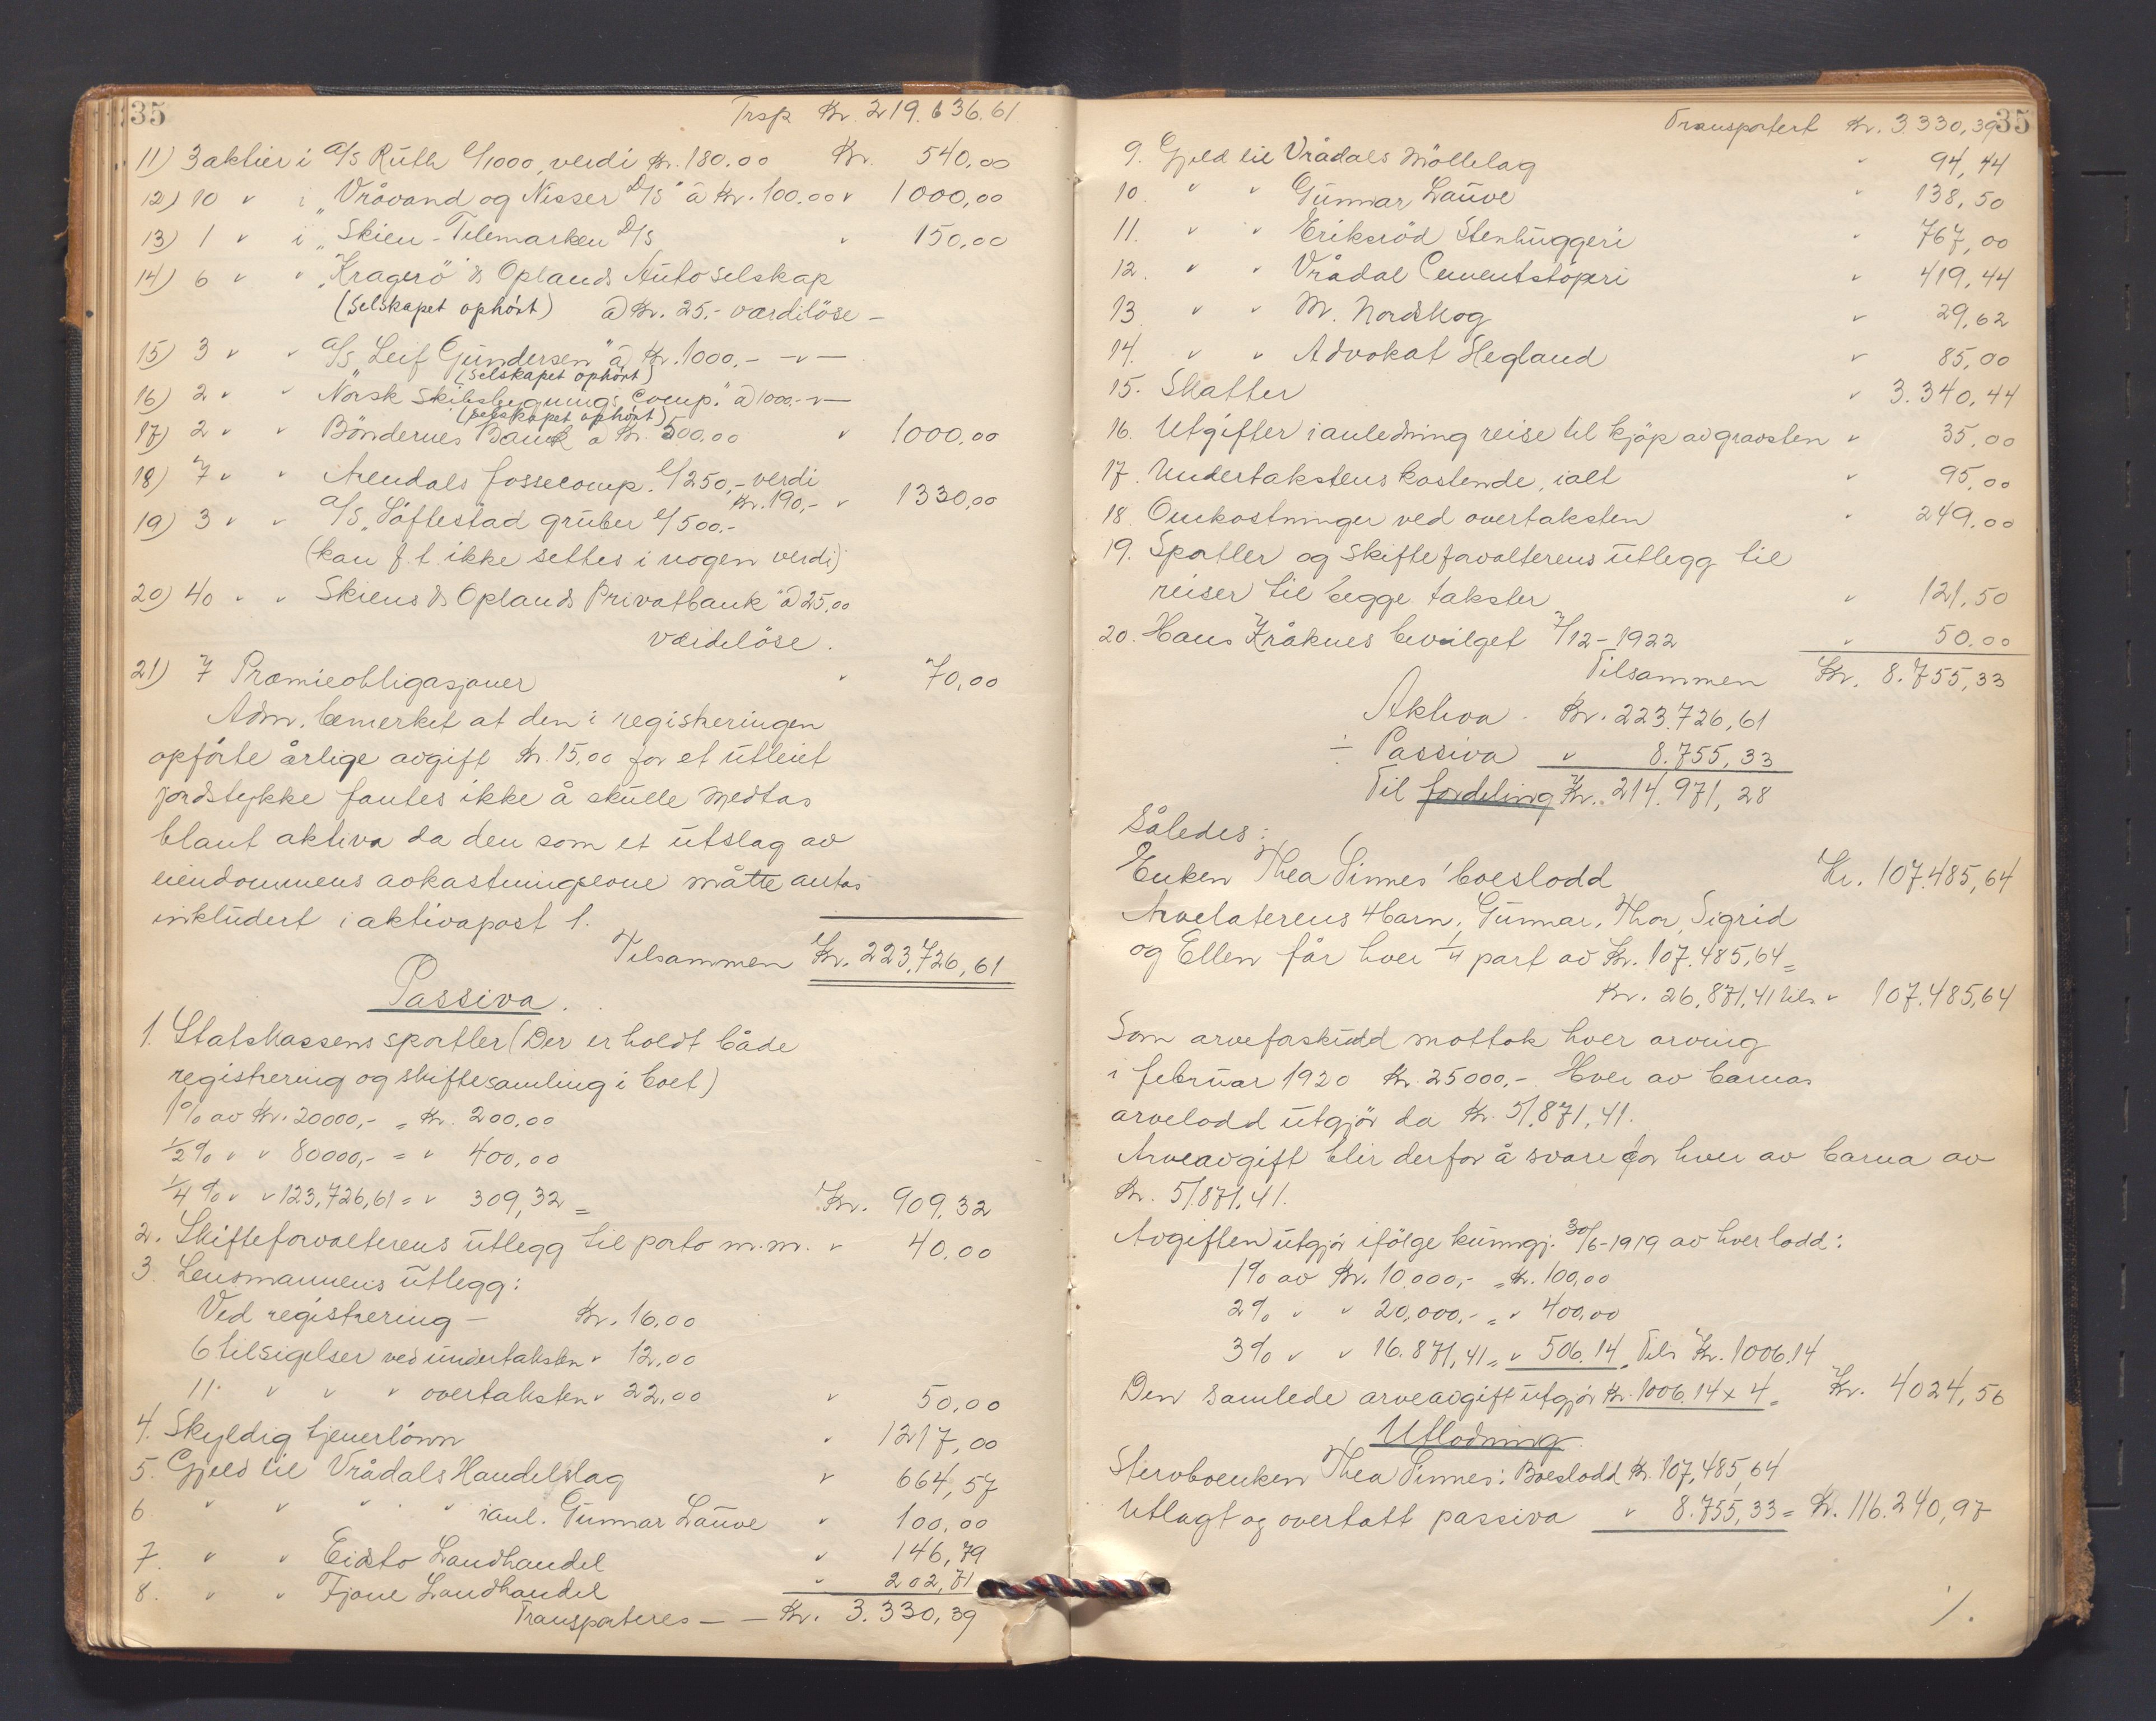 35
Trsp Kr. 219.636.61
11) 3 aktier i A/S Ruth à/1000, verdi Kr. 180.00 Kr. 540,00
12) 10 " i "Vråvand og Nisser D/S" à Kr. 100,00 " 1000,00
13) 1 " i "Skien-Telemarken D/S " 150,00
14) 6 " " "Kragerö & Oplands Autoselskap
(selskapet ophört) à Kr. 25.- værdilöse -
15) 3 " " A/S Leif Gundersen" à Kr. 1000.- -"-
(selskapet ophört)
16) 2 " " Norsk Skibsbygnings Comp." à 1000.- -"-
(selskapet ophört)
17) 2 " " Böndernes Bank à Kr. 500,00 " 1000,00
18) 7 " " Arendals fossecomp. à/250,- verdi
Kr. 190,- " 1330,00
19) 3 " " A/S "Söftestad gruber à/500.-
(kan f.t. ikke settes i nogen verdi)
20) 40 " " Skiens & Oplands Privatbank" à 25,00
værdilöse.
21) 7 Præmieobligasjoner " 70,00
Adm. bemerket at den i registreringen
opförte årlige avgift Kr. 15,00 for et utleiet
jordstykke fantes ikke å skulle medtas
blant aktiva da den som et utslag av
eiendommens avkastningsevne måtte antas
inkludert i aktivapost 1.
Tilsammen Kr. 223,726,61
Passiva.
1. Statskassens sportler (Der er holdt både
registrering og skiftesamling i boet)
1% av Kr. 20000,- = Kr. 200.00
1/2% " " 80000,- = " 400,00
1/4% " " 123,726,61 = " 309,32 = Kr. 909.32
2. Skifteforvalterens utlegg til porto m.m. " 40.00
3. Lensmannens utlegg:
Ved registrering - Kr. 16,00
6 tilsigelser ved undertaksten " 12,00
11 " " " overtaksten " 22,00 " 50,00
4. Skyldig tjenerlönn " 1217,00
5. Gjeld til Vrådals Handelslag " 664,57
6 " " " " ianl. Gunnar Lauve " 100,00
7. " " Eidsto Landhandel " 146,79
8. " " Fjone Landhandel " 202,71
Transporteres - - Kr. 3.330,39
35
Transportert Kr. 3.330,39
9. Gjeld til Vrådals Möllelag " 94,44
10 " " Gunnar Lauve " 138,50
11. " " Eriksröd Stenhuggeri " 767,00
12. " " Vrådal Cementstöperi " 419,44
13 " " M. Nordskog " 29,62
14. " " Advokat Hegland " 85,00
15. Skatter " 3.340,44
16. Utgifter i anledning reise til kjöp av gravsten " 35,00
17. Undertakstens kostende, ialt " 95,00
18. Omkostninger ved overtaksten " 249,00
19. Sportler og skifteforvalterens utlegg til
reiser til begge takster " 121,50
20. Hans Kråknes bevilget 7/12-1922 " 50.00
Tilsammen Kr. 8.755,33
Aktiva. Kr. 223.726,61
÷ Passiva " 8.755,33
Til fordeling Kr. 214.971,28
Således:
Enken Thea Sinnes' boeslodd Kr. 107.485,64
Arvelaterens 4 barn, Gunnar, Thor, Sigrid
og Ellen får hver 1/4 part av Kr. 107.485,64 =
Kr. 26,871,41 tils " 107.485,64
Som arveforskudd mottok hver arving
i februar 1920 Kr. 25000,-. Hver av barnas
arvelodd utgjör da Kr. 51,871,41.
Arveavgift blir derfor å svare for hver av barna av
Kr. 51.871.41.
Avgiften utgjör ifölge kunngj. 30/6-1919 av hver lodd:
1% av Kr. 10.000,- = Kr. 100,00
2% " " 20,000,- = " 400,00
3% " " 16.871,41 = " 506.14. Tils Kr. 1006.14
Den samlede arveavgift utgjör Kr. 1006.14 x 4 = Kr. 4024,56
Utlodning
Stervboenken Thea Sinnes: Boeslodd Kr. 107,485,64
Utlagt og overtatt passiva " 8.755,33 = Kr. 116.240,97